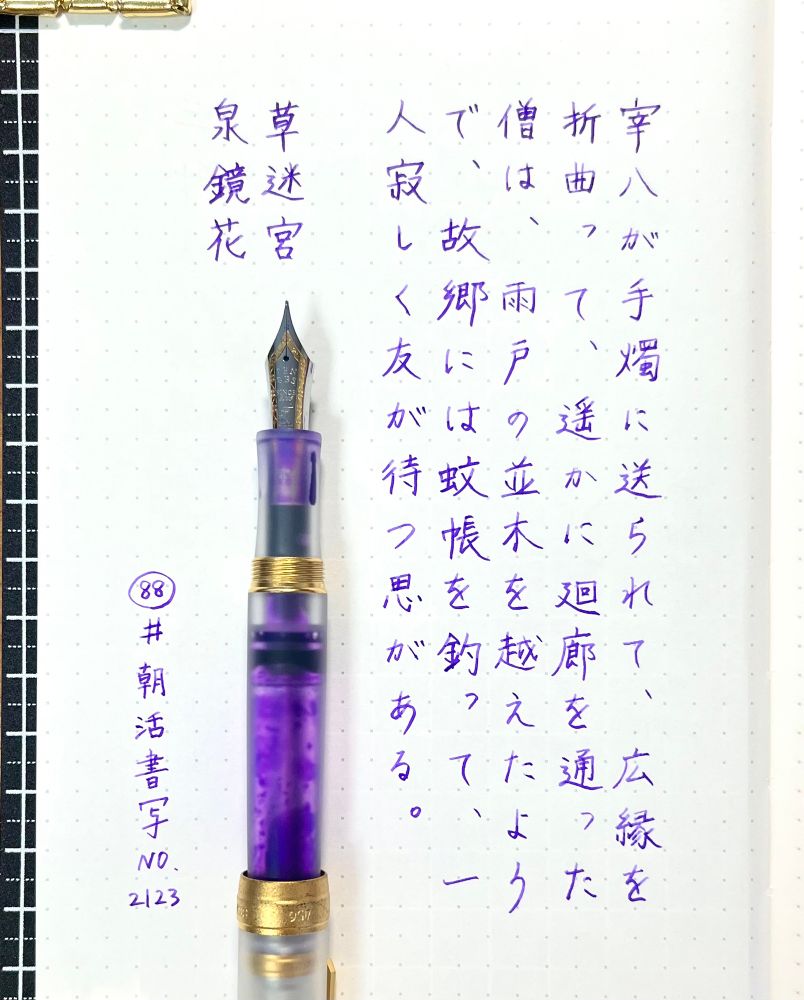 宰八が手燭に送られて、広縁を
折曲って、遥かに廻廊を通った
僧は、雨戸の並木を越えたよう
で、故郷には蚊帳を釣って、一
人寂しく友が待つ思がある。
草迷宮
泉鏡花
88
#朝活書写
NO.
2123